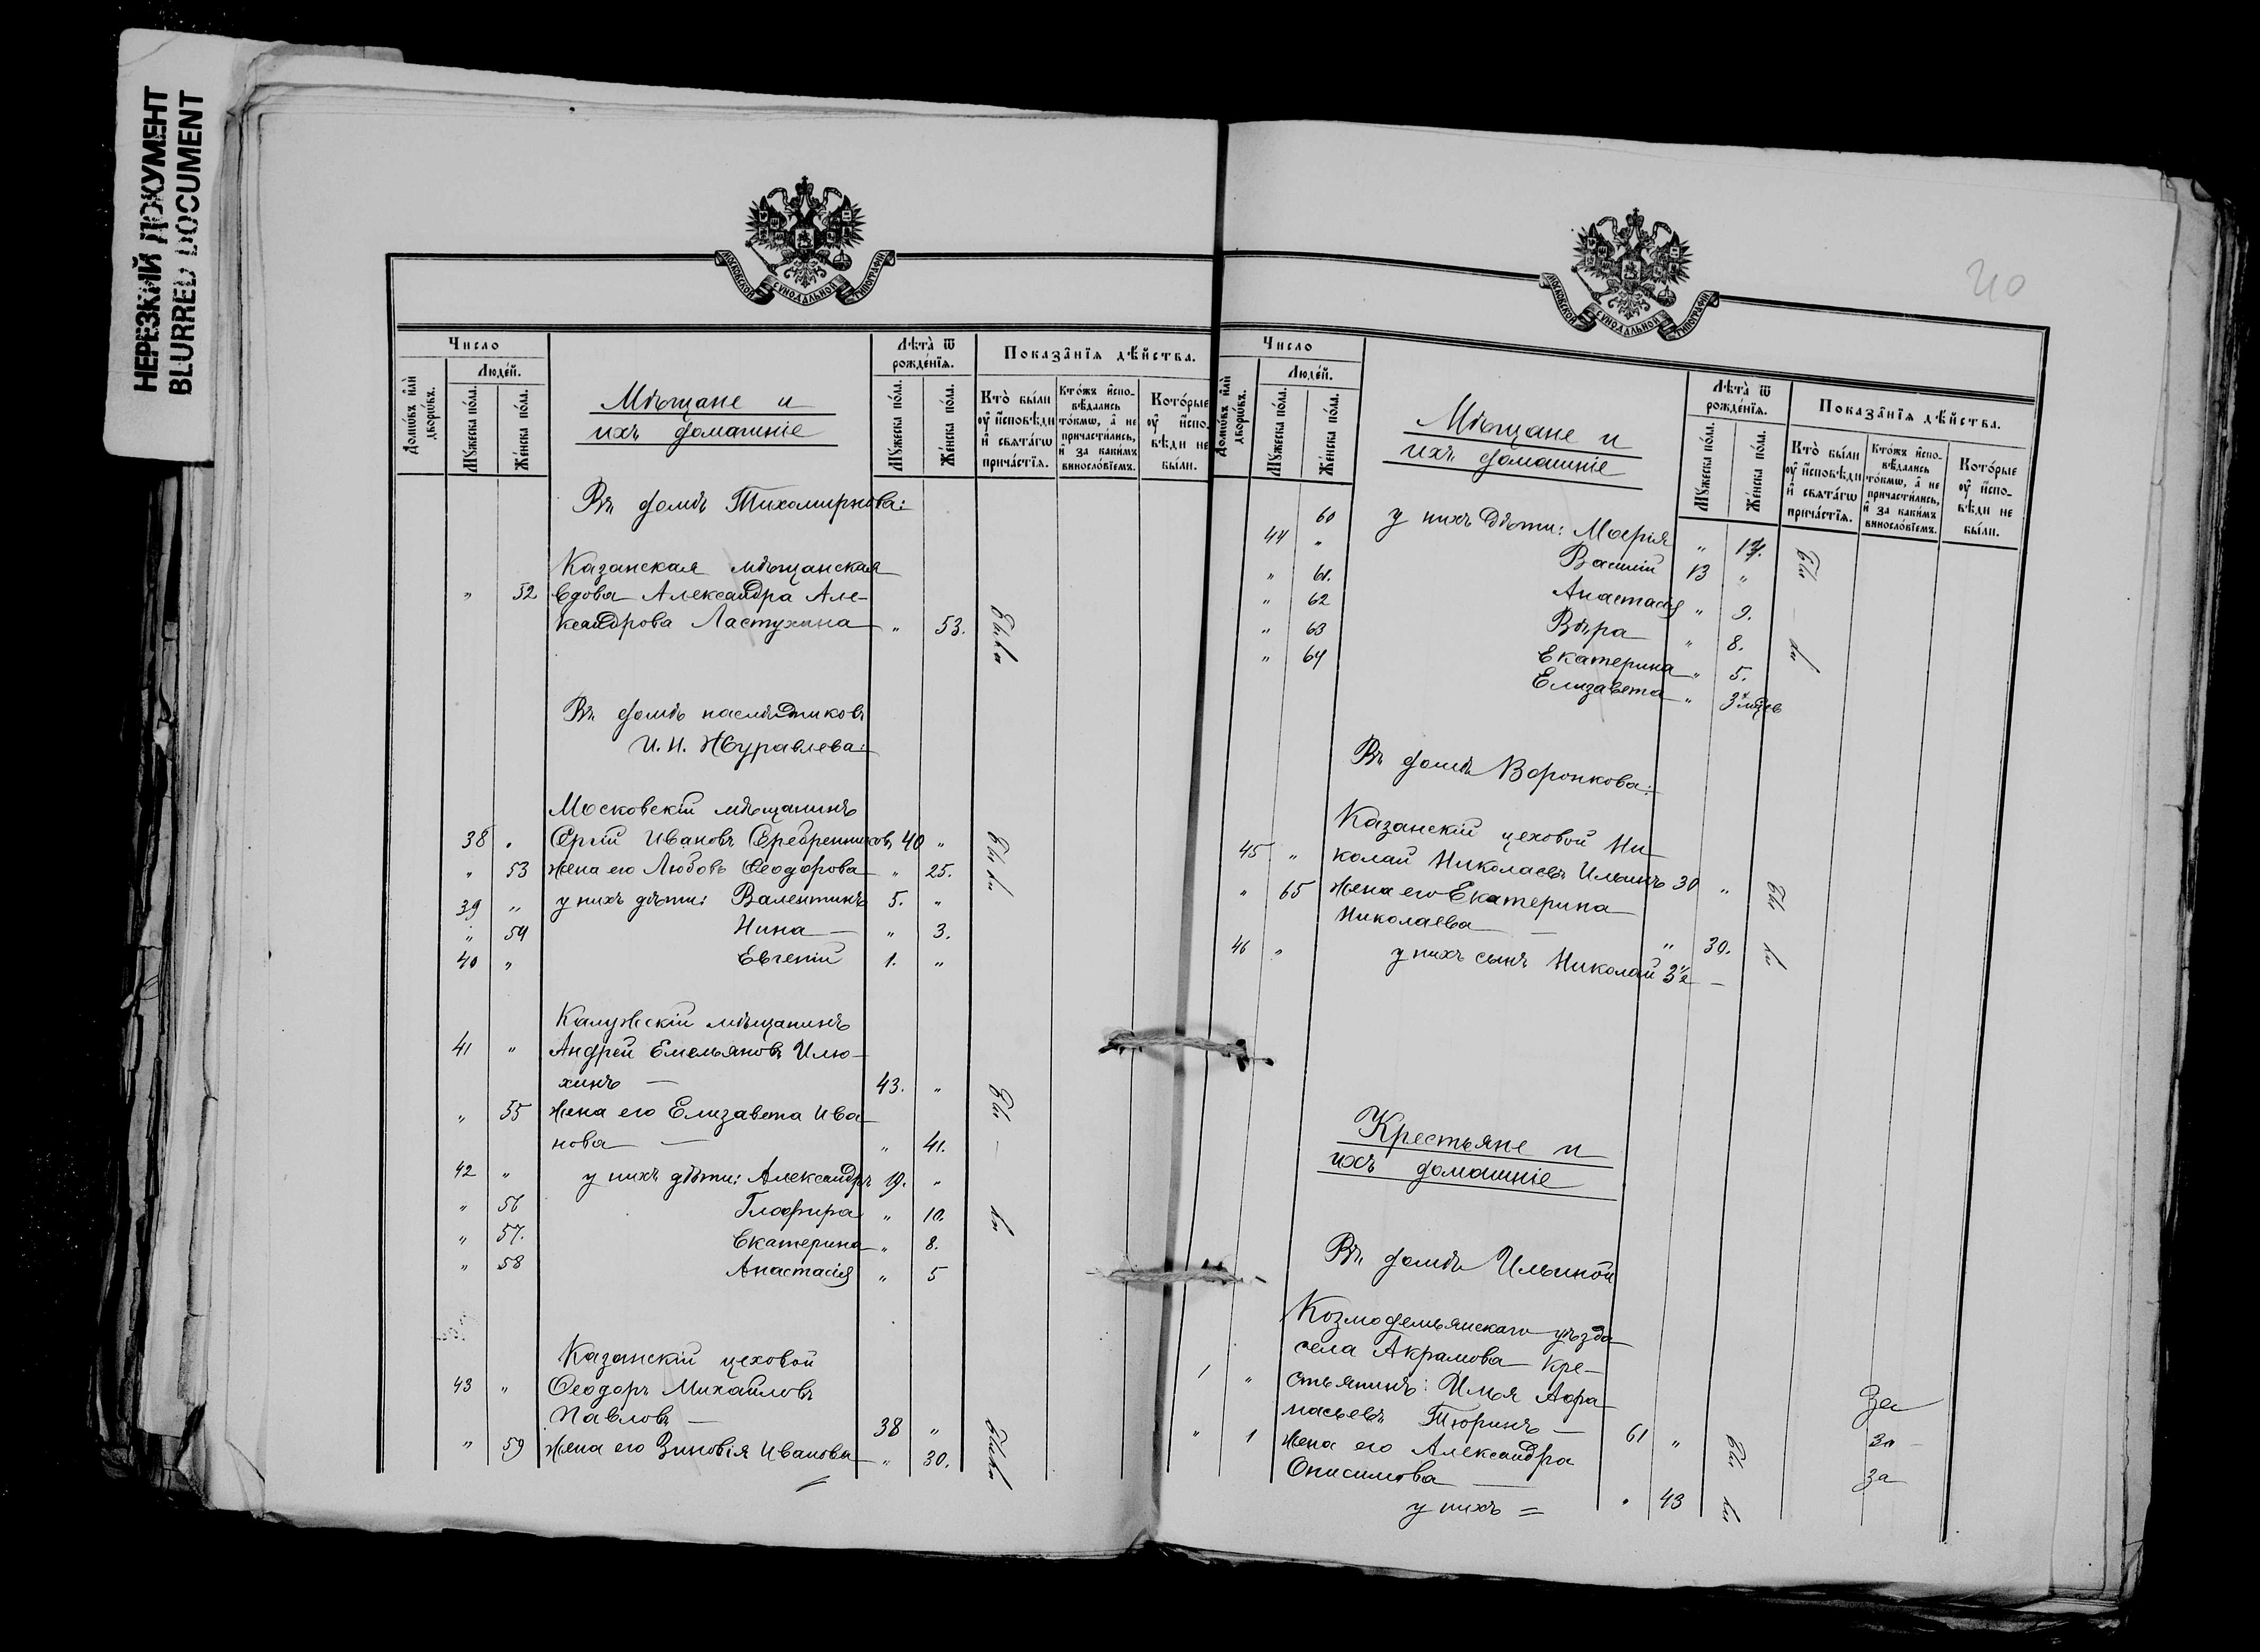 НЕРЕЗКИЙ ДОКУМЕНТ
BLURRED DOCUMENT
МОСКОВСКОЙ СѴНОДАЛЬНОЙ ТИПОГРАФІИ
Число
Людей.
Домѡвъ или дворѡвъ.
Мужеска пола.
Женска пола.
Мѣщане и
ихъ домашніе
Лѣта ѿ рожденїя.
Мужеска пола.
Женска пола.
Показанїя дѣйства.
Кто были оу исповѣди и свѧтагѡ причастїѧ.
Ктожъ исповѣдались токмѡ, а не причастились, и за какимъ винословїемъ.
Которые оу исповѣди не были.
Въ домѣ Тихомирнова:
Казанская мѣщанская
" 52 вдова Александра Але-
ксандрова Ластухина " 53. Были
Въ домѣ наслѣдниковъ
И. И. Журавлева:
Московскій мѣщанинъ
38 " Сергій Ивановъ Серебренниковъ 40 " Были
" 53 жена его Любовь Ѳеодорова " 25.
39 " у нихъ дѣти: Валентинъ 5. "
" 54 Нина — " 3.
40 " Евгеній 1. "
Калужскій мѣщанинъ
41 " Андрей Емельяновъ Илю-
хинъ — 43. "
" 55 жена его Елизавета Ива- Бы-
нова — " 41.
42 " у нихъ дѣти: Александръ 19. "
" 56 Глафира " 10. ли
" 57. Екатерина " 8.
" 58 Анастасія " 5
Казанскій цеховой
43 " Ѳеодоръ Михайловъ
Павловъ — 38 "
" 59 жена его Зиновія Иванова " 30. Были
40
МОСКОВСКОЙ СѴНОДАЛЬНОЙ ТИПОГРАФІИ
Число
Людей.
Домѡвъ или дворѡвъ.
Мужеска пола.
Женска пола.
Мѣщане и
ихъ домашніе
Лѣта ѿ рожденїя.
Мужеска пола.
Женска пола.
Показанїя дѣйства.
Кто были оу исповѣди и свѧтагѡ причастїѧ.
Ктожъ исповѣдались токмѡ, а не причастились, и за какимъ винословїемъ.
Которые оу исповѣди не были.
60 у нихъ дѣти: Марія " Бы-
44 " Василій 13 "
" 61. Анастасія " 9.
" 62 Вѣра " 8. ли
" 63 Екатерина " 5.
" 64 Елизавета "
Въ домѣ Воронкова:
Казанскій цеховой Ни-
45 " колай Николаевъ Ильинъ 30 " Бы-
" 65 жена его Екатерина
Николаева — " 30. ли
46 " у нихъ сынъ Николай 3½ —
Крестьяне и
ихъ домашніе
Въ домѣ Ильиной
Козмодемьянскаго уѣзда
села Акрамова кре-
1 " стьянинъ: Илья Афа- За
насьевъ Тюринъ — 61 " Бы- за
" 1 жена его Александра за
Онисимова — " 43 ли
у нихъ =